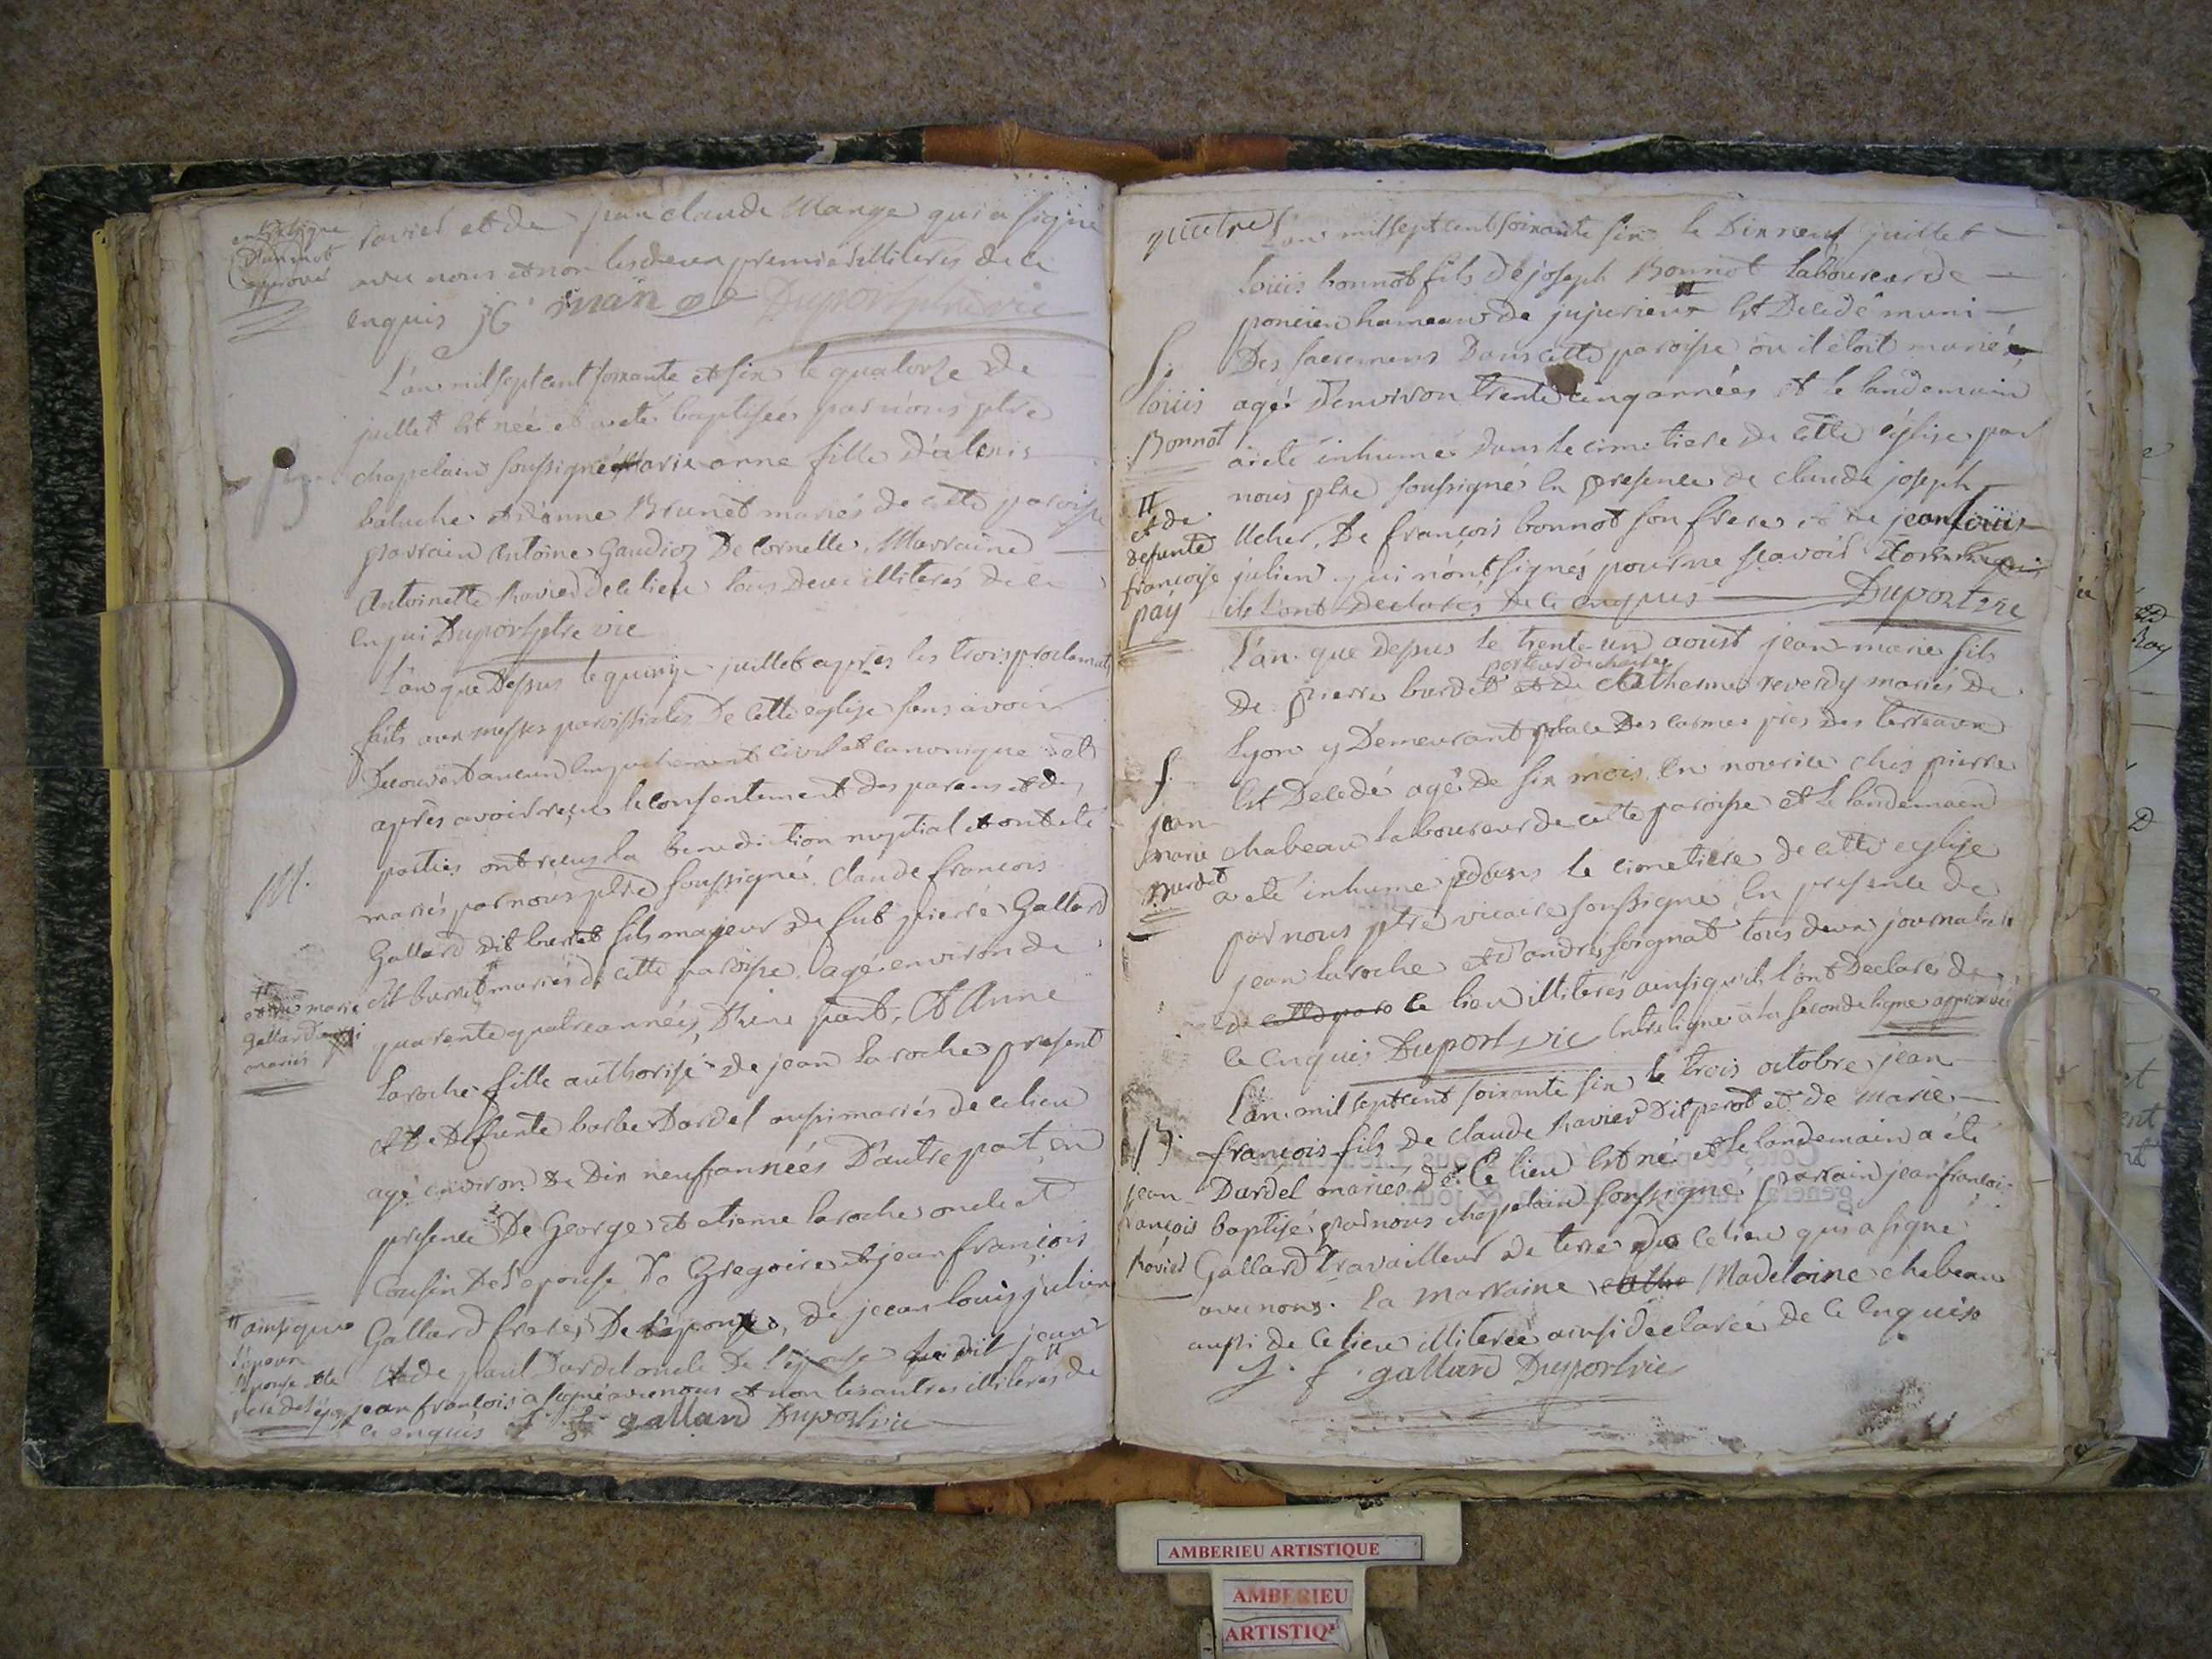 ravier et de jean claude Mange qui a signé
avec nous et non les deux premiers illiteres de ce
enquis JC mange Duport ptre vic
L'an mil sept cent soixante et six le quatorze de
juillet est née et a eté baptisée par nous ptre
chapelain soussigné Marie anne fille d'alexis
baluche et d'anne Brunet mariés de cette paroisse
parrain Antoine Gaudioz De Cornelle, Marraine
Antoinette Ravier de ce lieu tous deux illiterés de ce
enqui Duport ptre vic
L'an que Dessus le quinze juillet apres les trois proclamat
faits aux messes paroissiales De cette eglise sans avoir
Decouvert aucun empechement civil et canonique et
après avoir reçu le consentement des parens et des
parties ont reçus la benediction nuptial et ont été
M. mariés par nous ptre soussigné claude françois
Gallard dit burret fils majeur de fut pierre Gallard
dit burret mariés de cette paroise agé environ de
quarente quatre années, D'une part, Et Anne
Laroche fille authorisé de jean laroche present
et de Defunte barbe Dardel aussi mariés de ce lieu
agé environ de Dix neuf années D'autre part, en
presence De George et etienne laroche oncle et
Cousin De l'epouse de Gregoire et jean françois
Gallard freres De l'epoux, de jean louis julien
et de paul Dardel oncle De l'épouse
jean françois a signé avec nous et non les autres illiteres de
ce enquis J. f. gallard Duport vic
entreligne
D'un mot
approuvé
marie
gallard
mariés
ainsi que
l'epoux
l'epouse et le
pere de l'epouse
quatre
L'an mil sept cent soixante six le Dix neuf juillet
louis bonnot fils de joseph Bonnot laboureur de
poncieu hameau de jujurieux Est Decedé muni
Des sacremens Dans cette paroisse où il étoit marié
agé D'environ trente cinq années et le landemain
a eté inhumé dans le cimetiere de cette église par
nous ptre soussigné en presence de claude joseph
Ucher, De françois bonnot son frere et de jean louis
julien qui n'ont signés pour ne sçavoir
ils l'ont Declarés de ce enquis Duport vic
S.
louis
Bonnot
et de
defunte
françoise
paÿ
L'an que Depus le trente un aoust jean marie fils
porteur de chaise
De pierre burdet et de Catherine reverdy mariés De
Lyon y Demeurant place Des carmes près Des terreaux
Est Decedé agé De six mois en nourice chés pierre
chabeau laboureur de cette paroisse et le landemaen
a eté inhumé dans le cimetière de cette eglise
par nous ptre vicaire soussigné en presence de
jean laroche et d'andré soignat tous deux journaliers
de cette paro ce lieu illiterés ainsi qu'ils l'ont Declarés de
ce enquis Duport vic entreligne a la seconde ligne approuvée
S.
jean
marie
Burdet
L'an mil sept cent soixante six le trois octobre jean
françois fils De claude Ravier Dit perot et de marie
Dardel mariés De Ce lieu Est né et le landemain a eté
baptisé par nous chapelain soussigné, parrain jean françois
Gallard travailleur de terre de ce lieu qui a signé
avec nous. la marraine cathe Madelaine chabeau
aussi de ce lieu illiterée ainsi declarée de ce enquise
J. f. gallard Duport vic
B.
jean
françois
Ravier
AMBERIEU ARTISTIQUE
AMBERIEU
ARTISTIQ